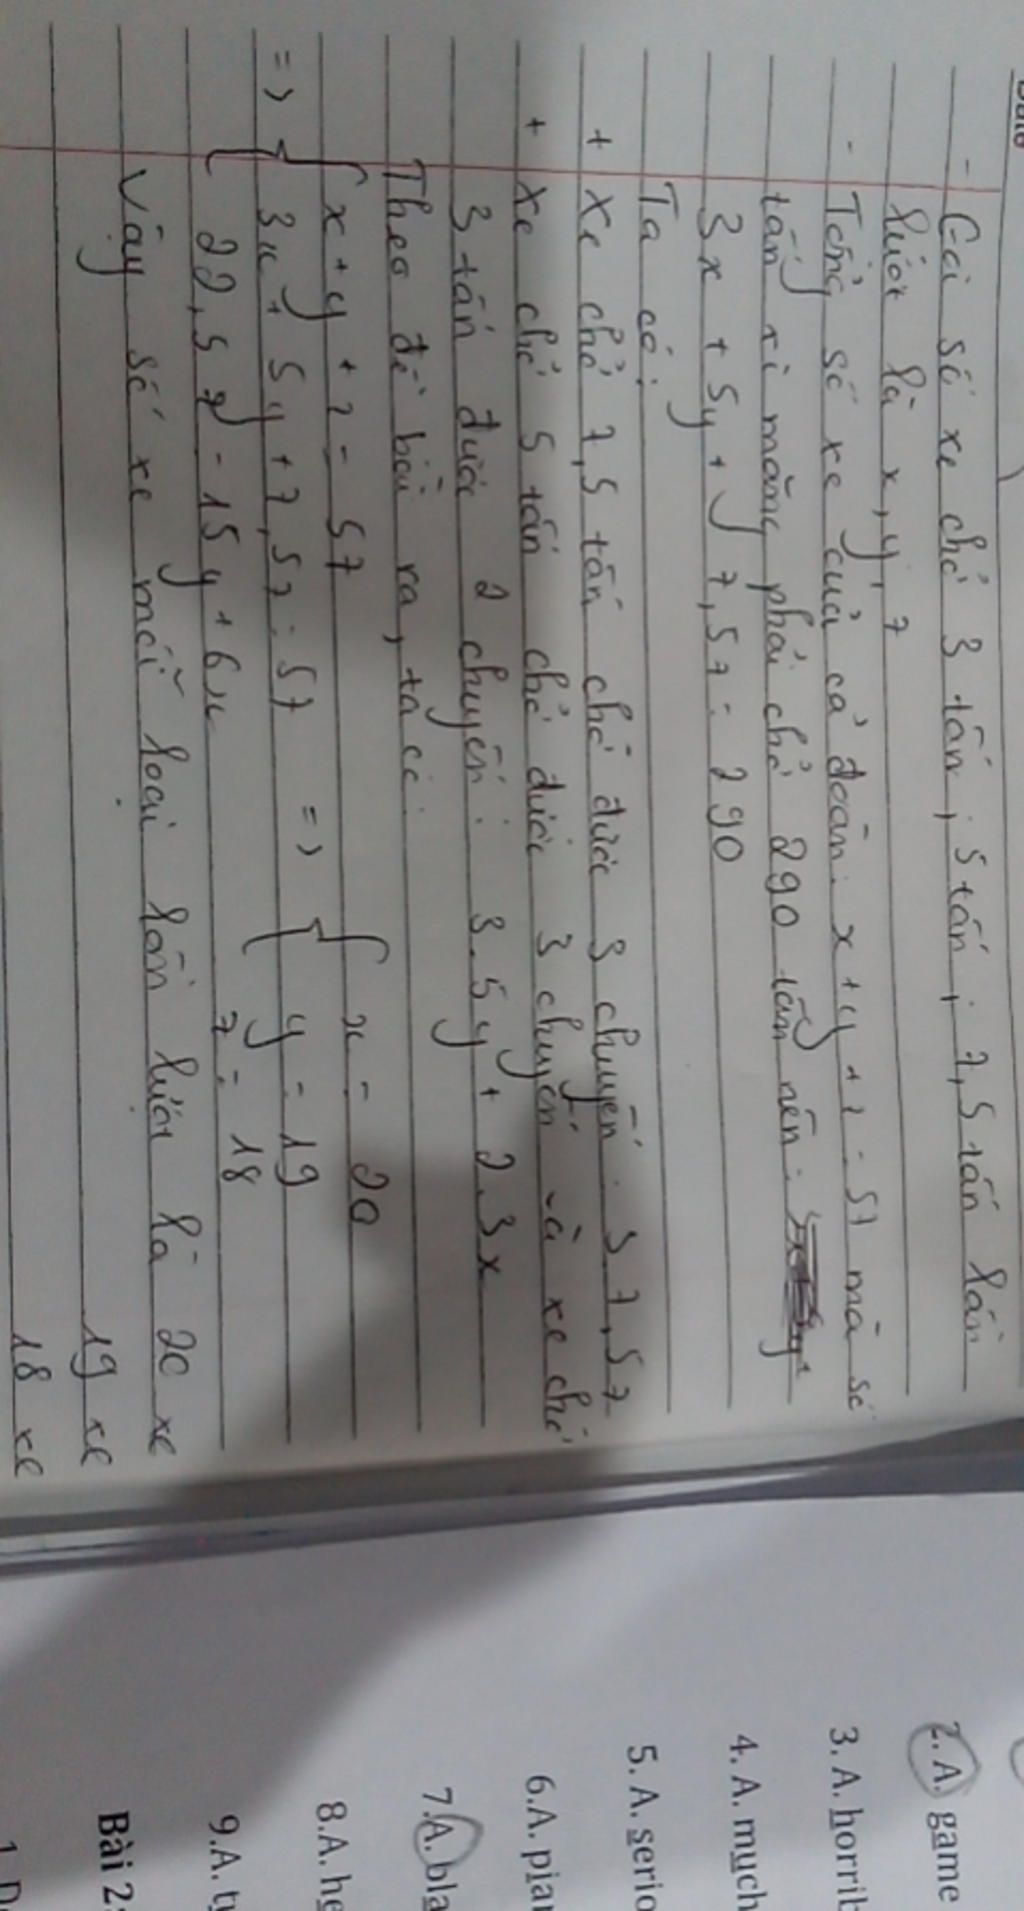 - Gọi số xe chở 3 tấn, 5 tấn, 7,5 tấn lần
lượt là x, y, z
- Tổng số xe của cả đoàn: x + y + z = 57 mà số
tấn xi măng phải chở 290 tấn nên:
3x + 5y + 7,5z = 290
Ta có:
+ Xe chở 7,5 tấn chở được 3 chuyến: 3.7,5z
+ Xe chở 5 tấn chở được 3 chuyến và xe chở
3 tấn được 2 chuyến: 3.5y + 2.3x
Theo đề bài ra, ta có:
{ x + y + z = 57
=> { 3x + 5y + 7,5z = 57 => { x = 20
22,5z = 15y + 6x { y = 19
z = 18
Vậy số xe mỗi loại lần lượt là 20 xe
19 xe
18 xe
2. A. game
3. A. horrib
4. A. much
5. A. serio
6.A. pia
7.A. bla
8.A. he
9.A. t
Bài 2: